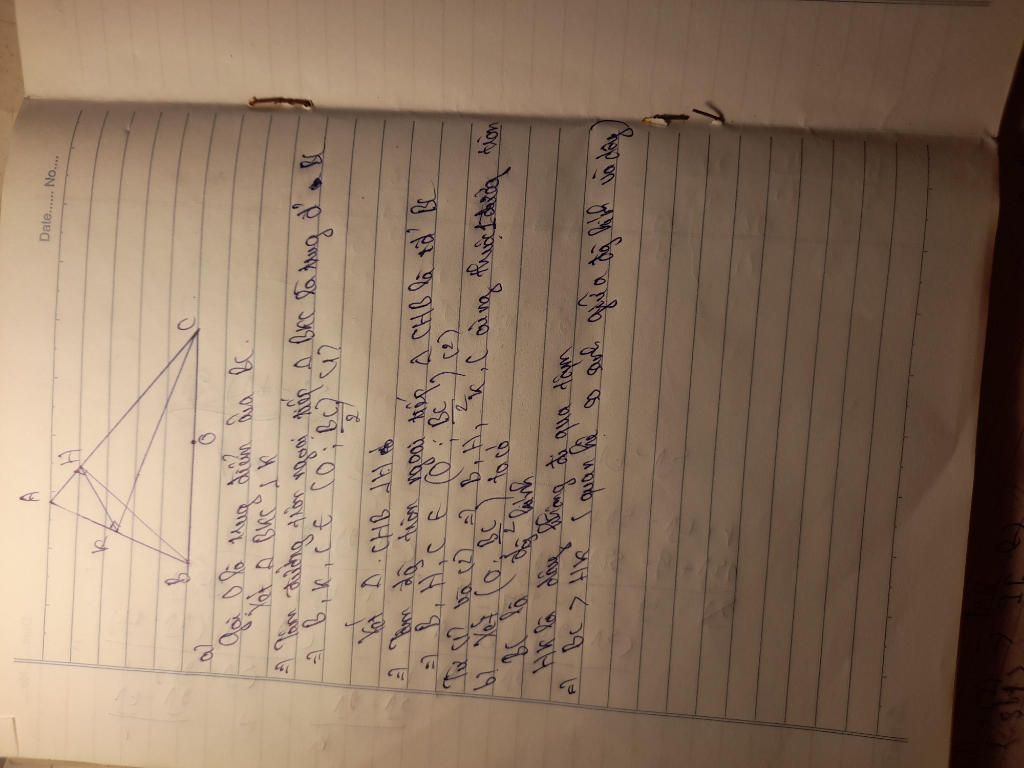 Date....... No.....
A
H
K
B
O
C
a)
Gọi O là trung điểm của BC.
Xét Δ BKC ⊥ K
⇒ Tâm đường tròn ngoại tiếp Δ BKC là trung đ' BC
⇒ B, K, C ∈ (O; BC/2) (1)
Xét Δ CHB ⊥ H
⇒ Tâm đg tròn ngoại tiếp Δ CHB là tđ' BC
⇒ B, H, C ∈ (O; BC/2) (2)
Từ (1) và (2) ⇒ B, H, K, C cùng thuộc đường tròn
b) Xét (O; BC/2) ta có
BC là đg kính
HK là dây không đi qua tâm
⇒ BC > HK (quan hệ so sánh giữa đg kính và dây)